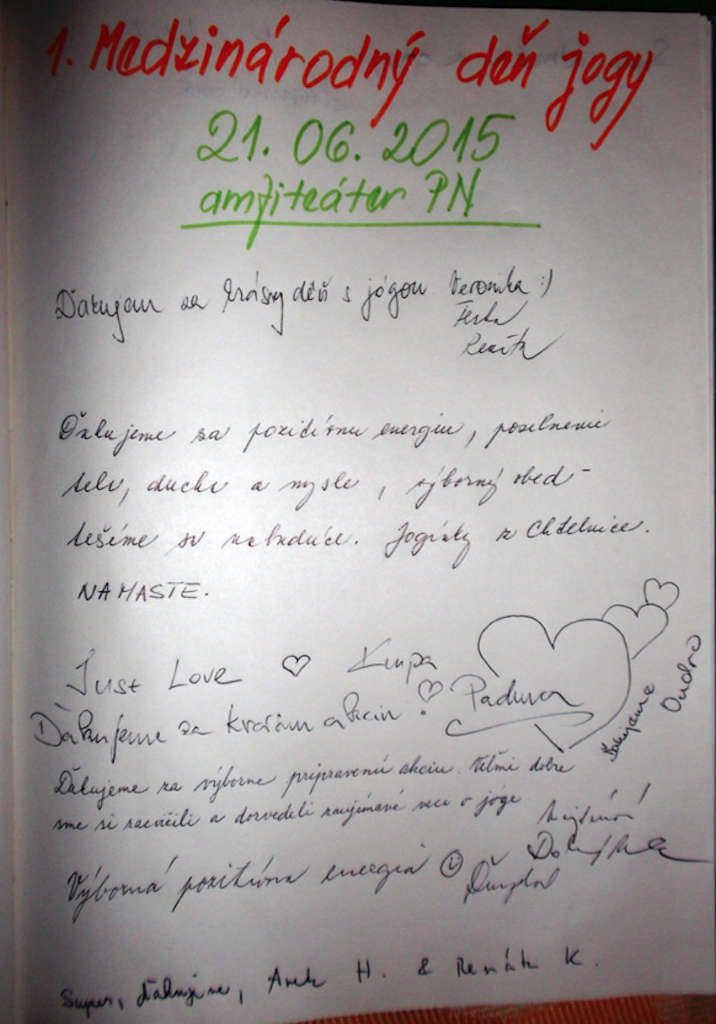 1. Medzinárodný deň jogy
21. 06. 2015
amfiteáter PN
Ďakujem za krásny deň s jógou Veronika :)
Ďakujeme za pozitívnu energiu, posilnenie
tela, ducha a mysle, výborný obed -
tešíme sa nabudúce. Jogínky z Chtelnice.
NAMASTE.
Just Love
Ďakujeme za krásnu akciu!
Ďakujeme
Ondro
Ďakujeme za výborne pripravenú akciu. Veľmi dobre
sme si zacvičili a dozvedeli zaujímavé veci o jóge
Výborná pozitívna energia
Super, ďakujeme, H. & Renáta K.